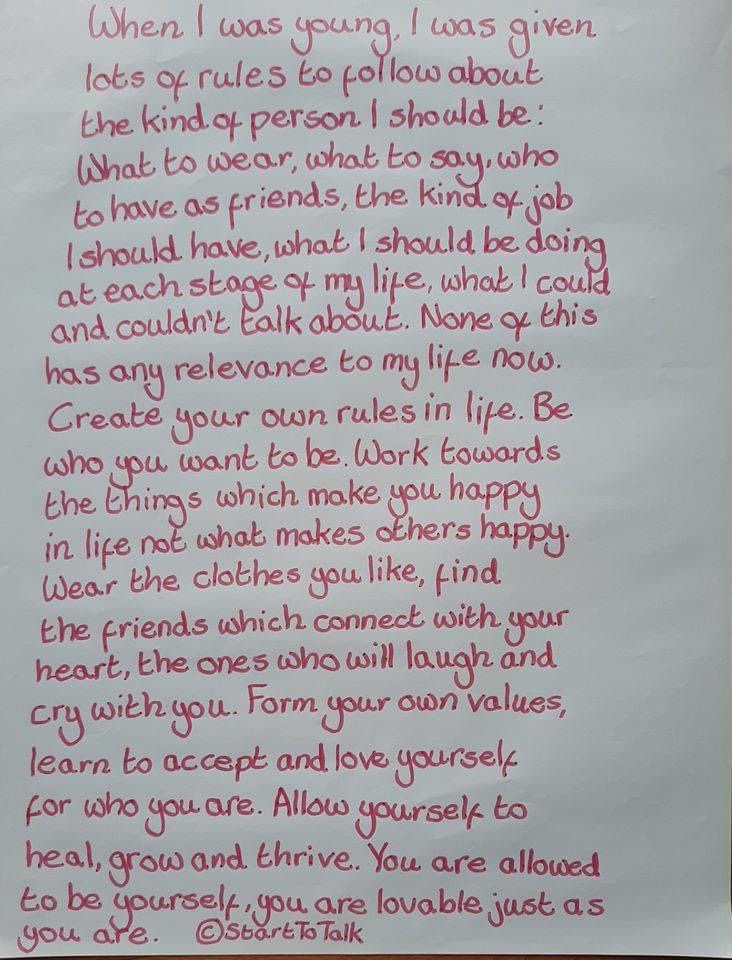 When I was young, I was given
lots of rules to follow about
the kind of person I should be:
What to wear, what to say, who
to have as friends, the kind of job
I should have, what I should be doing
at each stage of my life, what I could
and couldn't talk about. None of this
has any relevance to my life now.
Create your own rules in life. Be
who you want to be. Work towards
the things which make you happy
in life not what makes others happy.
Wear the clothes you like, find
the friends which connect with your
heart, the ones who will laugh and
cry with you. Form your own values,
learn to accept and love yourself
for who you are. Allow yourself to
heal, grow and thrive. You are allowed
to be yourself, you are lovable just as
you are. ©StartToTalk